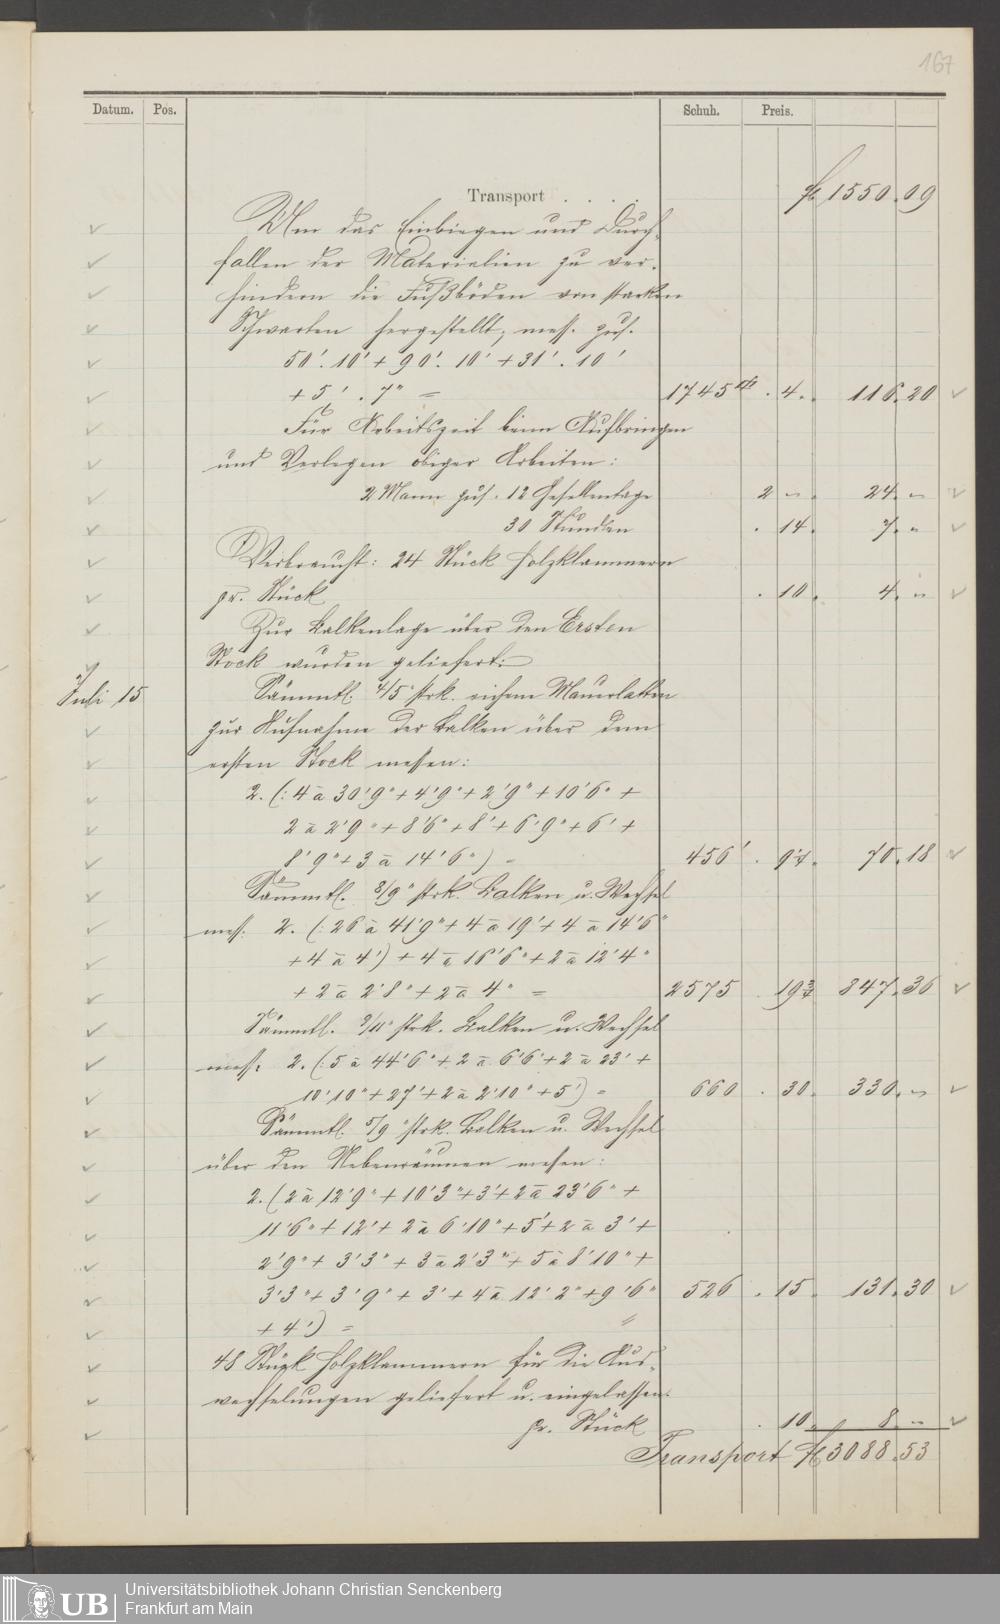 167
Datum. Pos. Schuh. Preis.
Transport . . . . fl 1550.09
Um das Einbiegen und Durch-
fallen der Materialien zu ver-
hindern die Fußböden von starken
Schwarten hergestellt, mess. zus.
50'. 10' + 90'. 10' + 31'. 10'
+ 5'. 7" = 1745 . 4. 116.20
Für Arbeitszeit beim Aufbringen
und Verlegen obiger Arbeiten:
2 Mann zus. 12 Gesellentage 2 " . 24. "
30 Stunden . 14. 7. "
Verbraucht: 24 Stück Holzklammern
pr. Stück . 10. 4. "
Zur Balkenlage über den Ersten
Stock wurden geliefert:
Juli 15 Sämmtl. 4/5" strk. eichene Mauerlatten
zur Aufnahme der Balken über dem
ersten Stock messen:
2. (: 4 à 30'9" + 4'9" + 2'9" + 10'6" +
2 à 2'9" + 8'6" + 8' + 6'9" + 6' +
8'9" + 3 à 14'6") = 456' . 9¼. 70.18
Sämmtl. 8/9" strk. Balken u. Wechsel
mess. 2. (: 26 à 41'9" + 4 à 19' + 4 à 14'6"
+ 4 à 4') + 4 à 16'6" + 2 à 12'4"
+ 2 à 2'8" + 2 à 4" = 2575 . 19¾ 847.36
Sämmtl. 9/11" strk. Balken u. Wechsel
mess: 2. (: 5 à 44'6" + 2 à 6'6" + 2 à 23' +
10'10" + 27' + 2 à 2'10" + 5') = 660 . 30. 330. "
Sämmtl. 5/9" strk. Balken u. Wechsel
über den Nebenräumen messen:
2. (2 à 12'9" + 10'3" + 3' + 2 à 23'6" +
11'6" + 12' + 2 à 6'10" + 5' + 2 à 3' +
2'9" + 3'3" + 3 à 2'3" + 5 à 8'10" +
3'3" + 3'9" + 3' + 4 à 12'2" + 9'6" 526 . 15. 131.30
+ 4') =
48 Stück Holzklammern für die Aus-
wechselungen geliefert u. eingelassen.
pr. Stück . 10. 8. "
Transport fl 3088.53
UB
Universitätsbibliothek Johann Christian Senckenberg
Frankfurt am Main